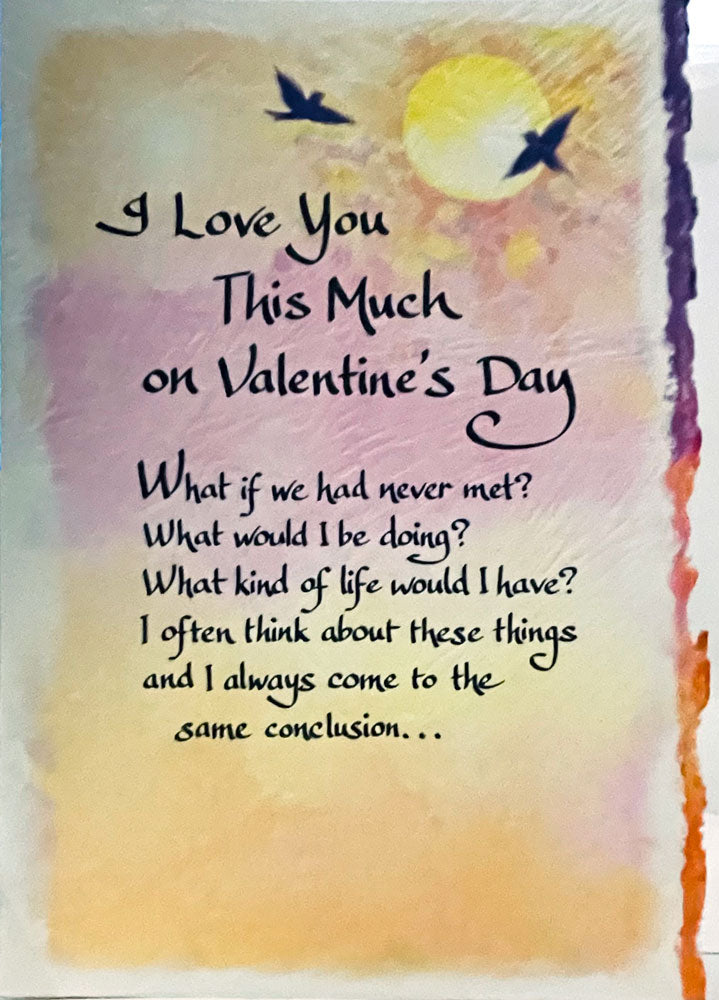 I Love You
This Much
on Valentine's Day
What if we had never met?
What would I be doing?
What kind of life would I have?
I often think about these things
and I always come to the
same conclusion...